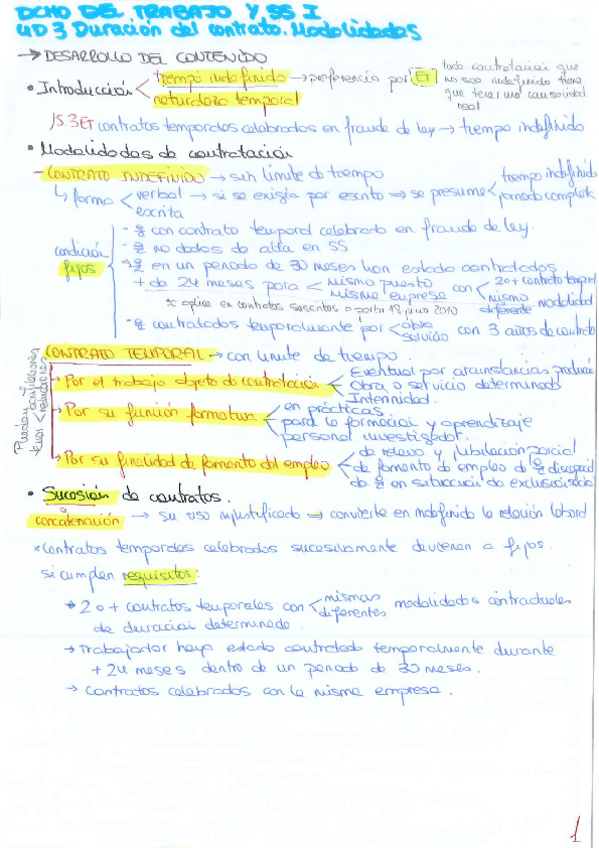 DCHO DEL TRABAJO Y SS I
UD 3 Duración del contrato. Modalidades
→ DESARROLLO DEL CONTENIDO
• Introducción < tiempo indefinido → preferencia por ET
naturaleza temporal
toda contratación que
no sea indefinida tiene
que tener una causalidad
real
15.3 ET contratos temporales celebrados en fraude de ley → tiempo indefinido
• Modalidades de contratación
- CONTRATO INDEFINIDO → sin límite de tiempo
↳ forma < verbal → si se exigía por escrito ⇒ se presume < tiempo indefinido
escrita
jornada completa
condición
fijos
- con contrato temporal celebrado en fraude de ley.
- no dados de alta en SS
- en un periodo de 30 meses han estado contratados
+ de 24 meses para < mismo puesto
misma empresa
con < 2 o + contrato temporal
mismo
diferente
modalidad
se aplica en contratos suscritos a partir 18 junio 2010
- contratados temporalmente por < obra
servicio
con 3 años de contrato
CONTRATO TEMPORAL → con límite de tiempo.
Puedan
tener
→ Por el trabajo objeto de contratación < Eventual por circunstancias producción
Obra o servicio determinado
Interinidad.
→ Por su función formativa. < en prácticas
para la formación y aprendizaje
personal investigador.
→ Por su finalidad de fomento del empleo < de relevo y jubilación parcial
de fomento de empleo de discapacid
de en situación de exclusión social
• Sucesión de contratos.
o
concatenación → su uso injustificado ⇒ convierte en indefinido la relación laboral
* Contratos temporales celebrados sucesivamente devienen a fijos.
si cumplen requisitos:
→ 2 o + contratos temporales con < mismas
diferentes
modalidades contractuales
de duración determinada.
→ trabajador haya estado contratado temporalmente durante
+ 24 meses dentro de un periodo de 30 meses.
→ contratos celebrados con la misma empresa.
1